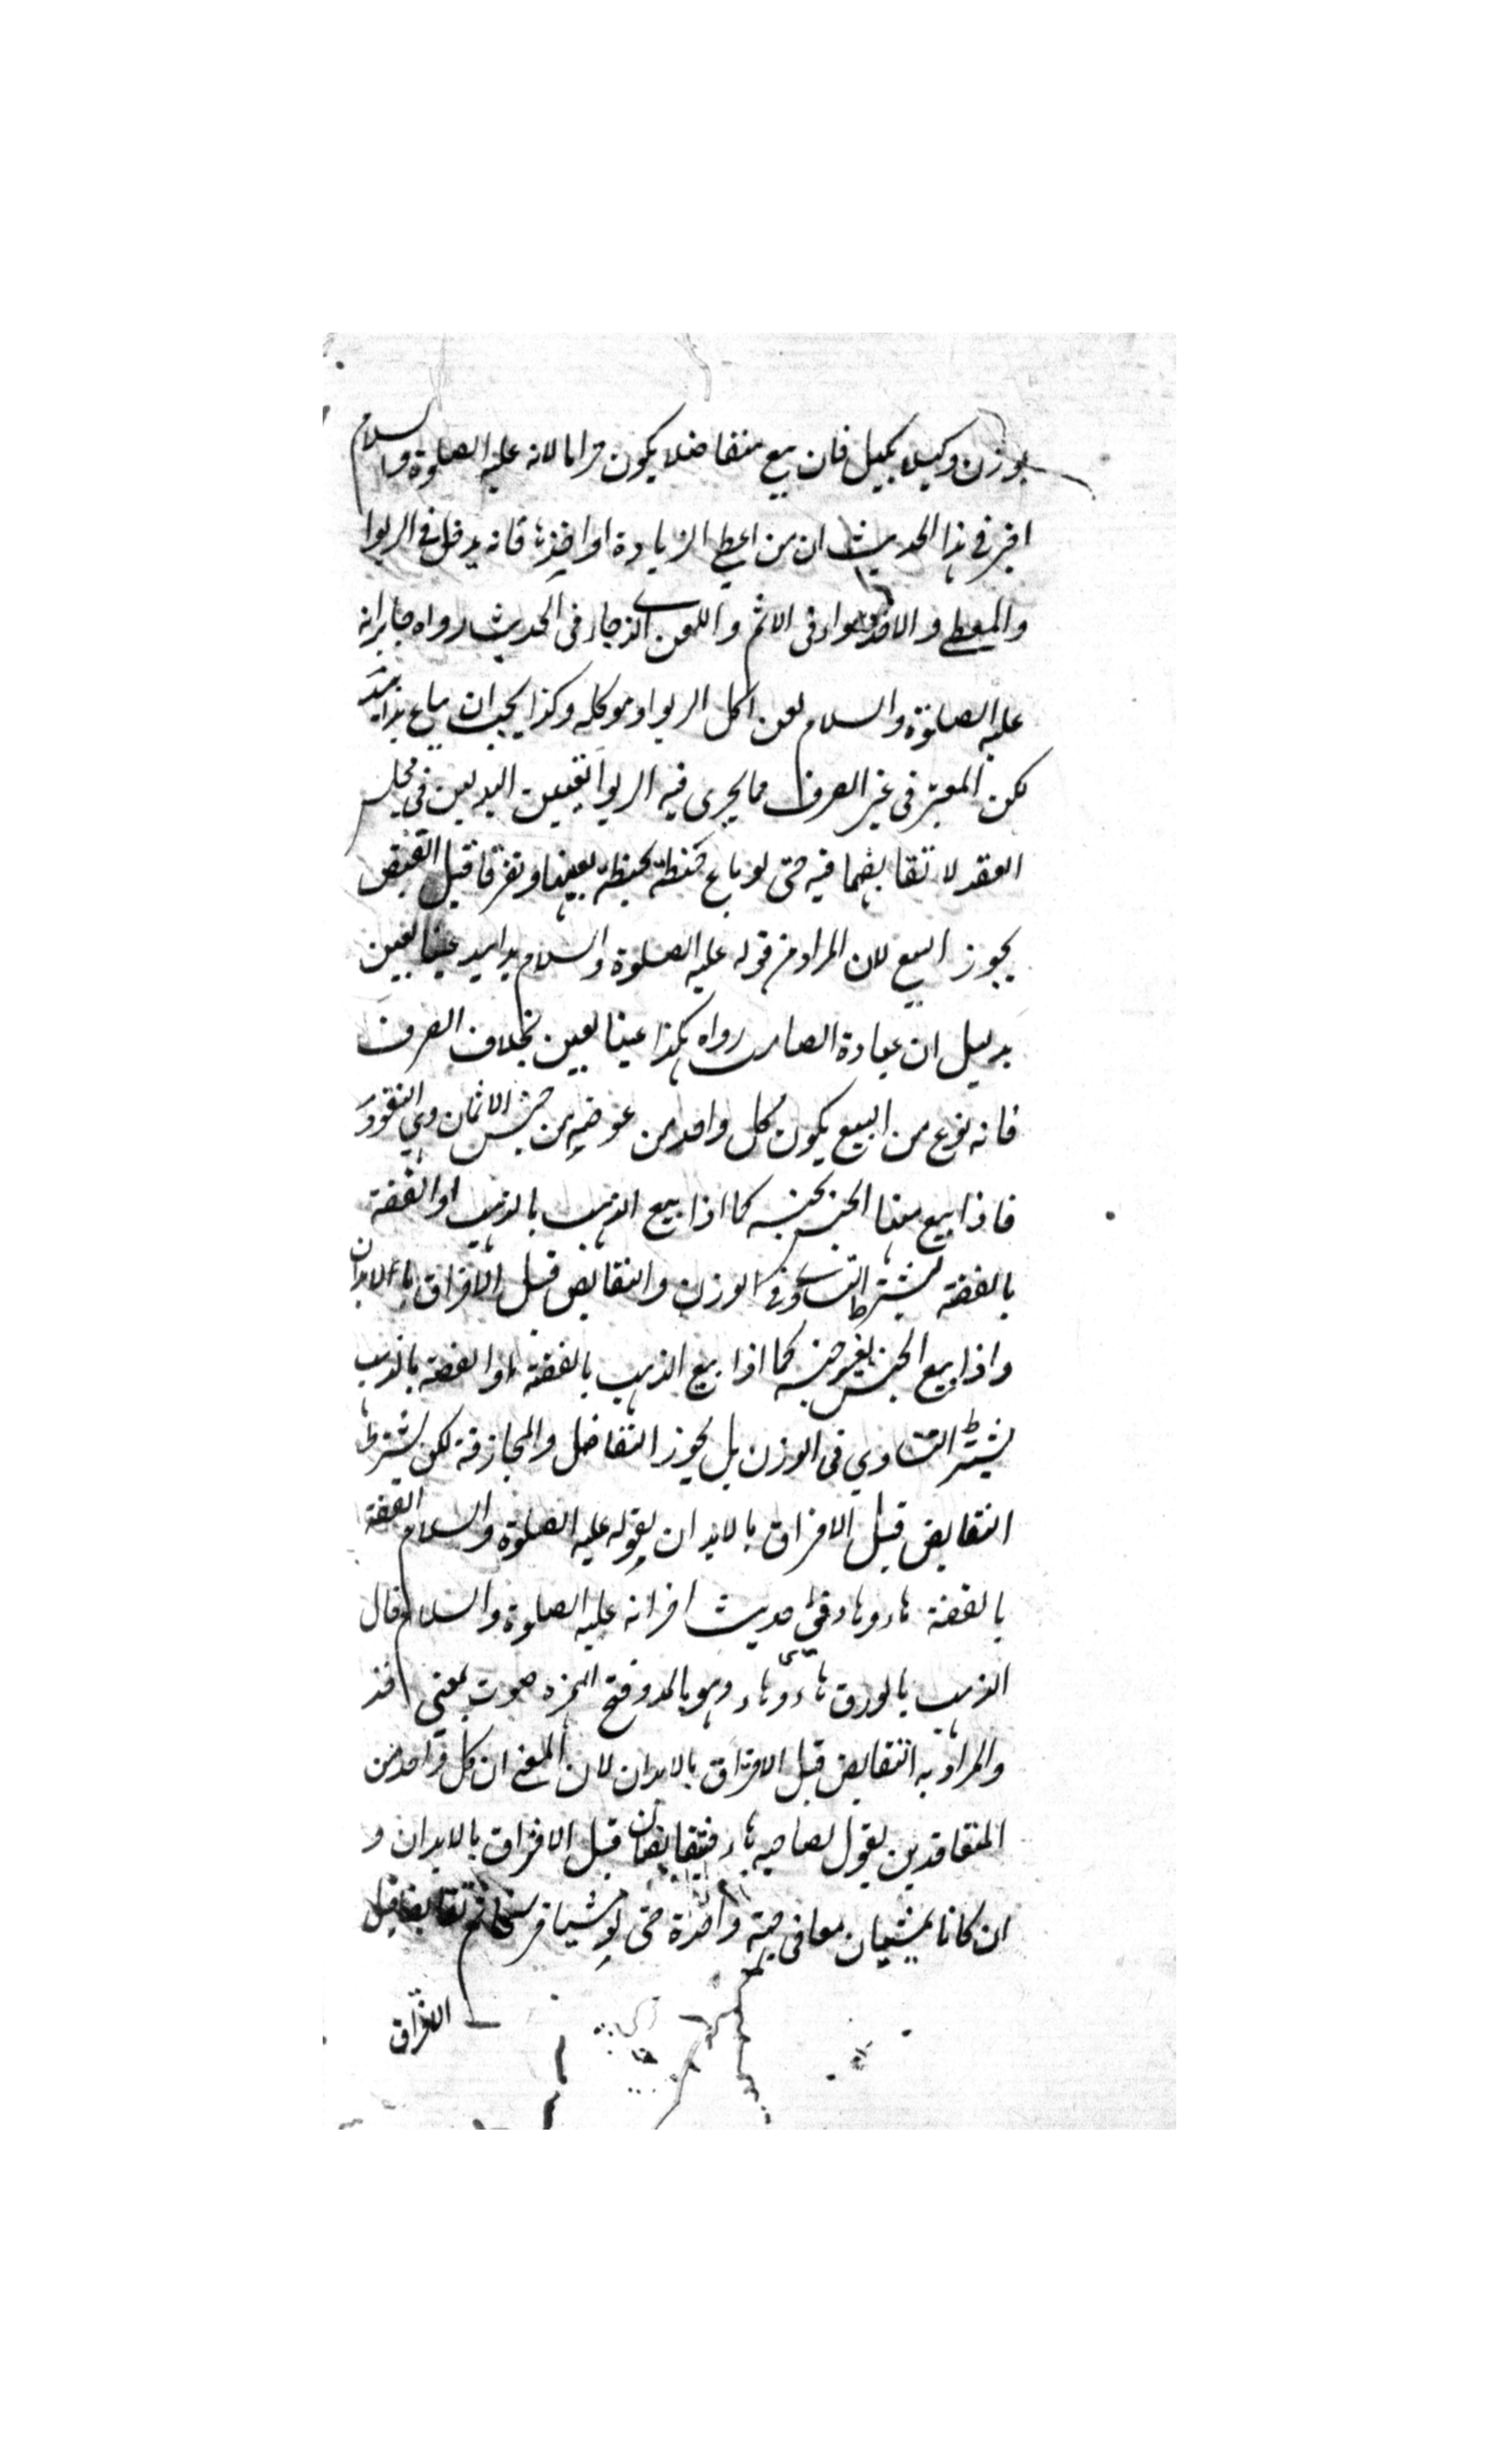 بوزن وكيلا بكيل فان بيع متفاضلا يكون حراما لانه عليه الصلوة والسلام
اخبر في هذا الحديث ان من اعطى الزيادة او اخذها فانه يدخل في الربوا
والمعطي والاخذ سواء في الاثم واللعن الذي جاء في الحديث رواه جابر انه
عليه الصلوة والسلام لعن اكل الربوا وموكله وكذا يجب ان يباع يدا بيد
لكن المعتبر في غير الصرف مما يجرى فيه الربوا تعيين البدلين في مجلس
العقد لا تقابضهما فيه حتى لو باع حنطة بحنطة بعينها وتفرقا قبل القبض
يجوز البيع لان المراد من قوله عليه الصلوة والسلام يدا بيد عينا بعين
بدليل ان عبادة الصامت رواه هكذا عينا بعين بخلاف الصرف
فانه نوع من البيع يكون كل واحد من عوضيه من جنس الاثمان وهي النقود
فاذا بيع منها الجنس بجنسه كما اذا بيع الذهب بالذهب او الفضة
بالفضة يشترط التساوي في الوزن والتقابض قبل الافتراق بالابدان
واذا بيع الجنس بغير جنسه كما اذا بيع الذهب بالفضة او الفضة بالذهب لا
يشترط التساوي في الوزن بل يجوز التفاضل والمجازفة لكن يشترط
التقابض قبل الافتراق بالابدان لقوله عليه الصلوة والسلام الفضة
بالفضة هاء وهاء وفي حديث اخر انه عليه الصلوة والسلام قال
الذهب بالورق هاء وهاء وهو بالمد وفتح الهمزة صوت بمعنى خذ
والمراد به التقابض قبل الافتراق بالابدان لان المعنى ان كل واحد من
المتعاقدين يقول لصاحبه هاء فيتقابضان قبل الافتراق بالابدان و
ان كانا يمشيان معا في جهة واحدة حتى لو مشيا فرسخا ثم تقابضا قبل
الافتراق